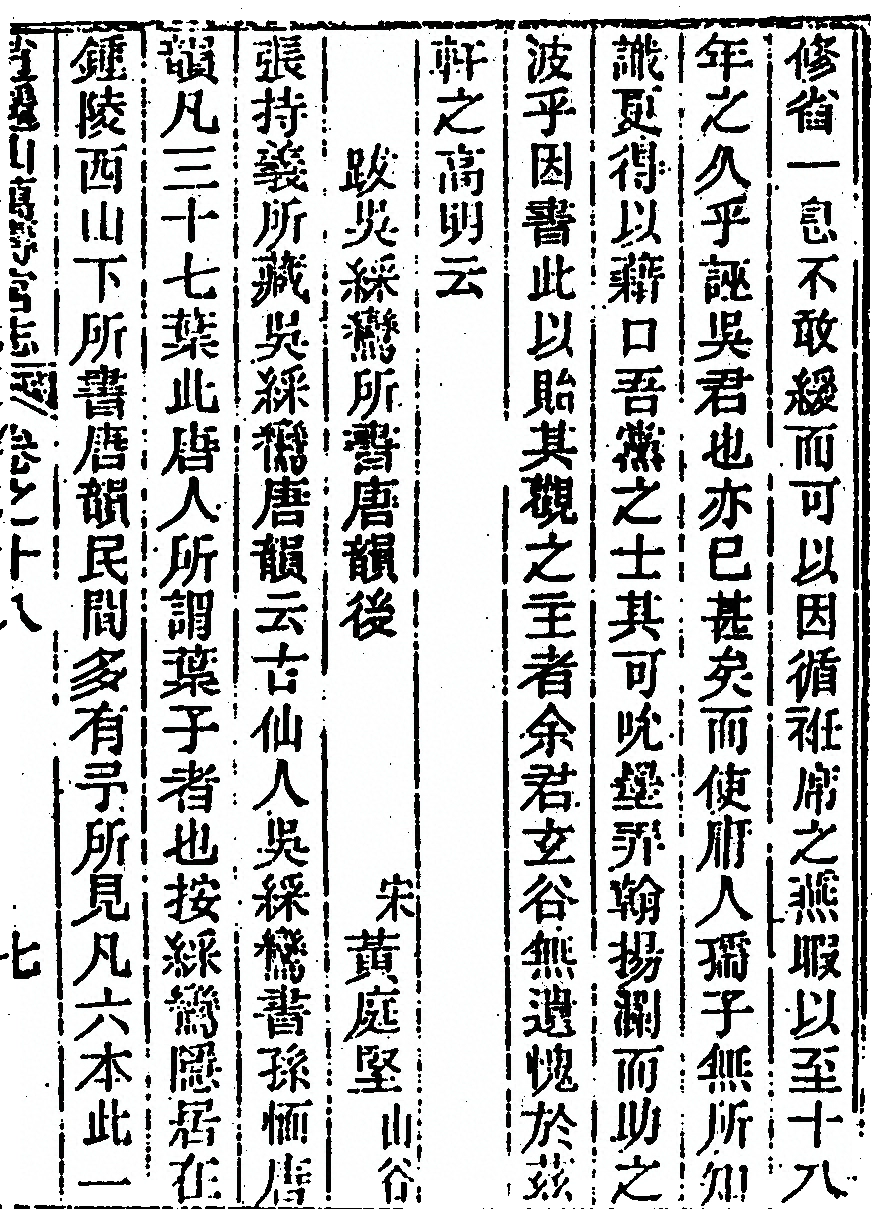 修省一息不敢緩而可以因循袵席之燕暇以至十八
年之久乎誣吳君也亦已甚矣而使庸人孺子無所知
識更得以藉口吾黨之士其可吮墨弄翰揚瀾而助之
波乎因書此以貽其觀之主者余君玄谷無遺愧於茲
軒之高明云
跋吳綵鸞所書唐韻後
宋黃庭堅山谷
張持義所藏吳綵鸞唐韻云古仙人吳綵鸞書孫愐唐
韻凡三十七葉此唐人所謂葉子者也按綵鸞隱居在
鍾陵西山下所書唐韻民間多有予所見凡六本此一
逍遙山萬壽宮志 卷之十八 七